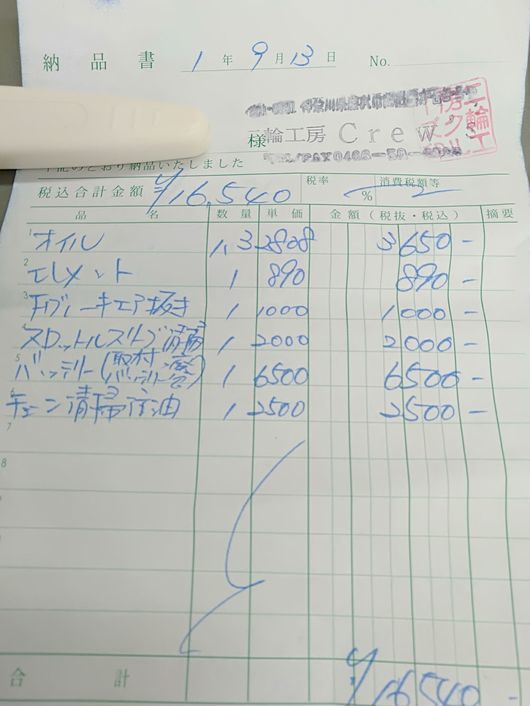 納品書 1年9月13日 No.
様
二輪工房 Crew's
下記のとおり納品いたしました
税込合計金額 ¥16,540 税率 % 消費税額等
品名 数量 単価 金額(税抜・税込) 摘要
1 オイル 1,3 2808 3650-
2 エレメント 1 890 890-
3 ブレーキエア抜き 1 1000 1000-
4 スロットルスリーブ清掃 1 2000 2000-
5 バッテリー(取付 バッテリー含) 1 6500 6500-
6 チェーン清掃注油 1 2500 2500-
7
8
合計 ¥16540-